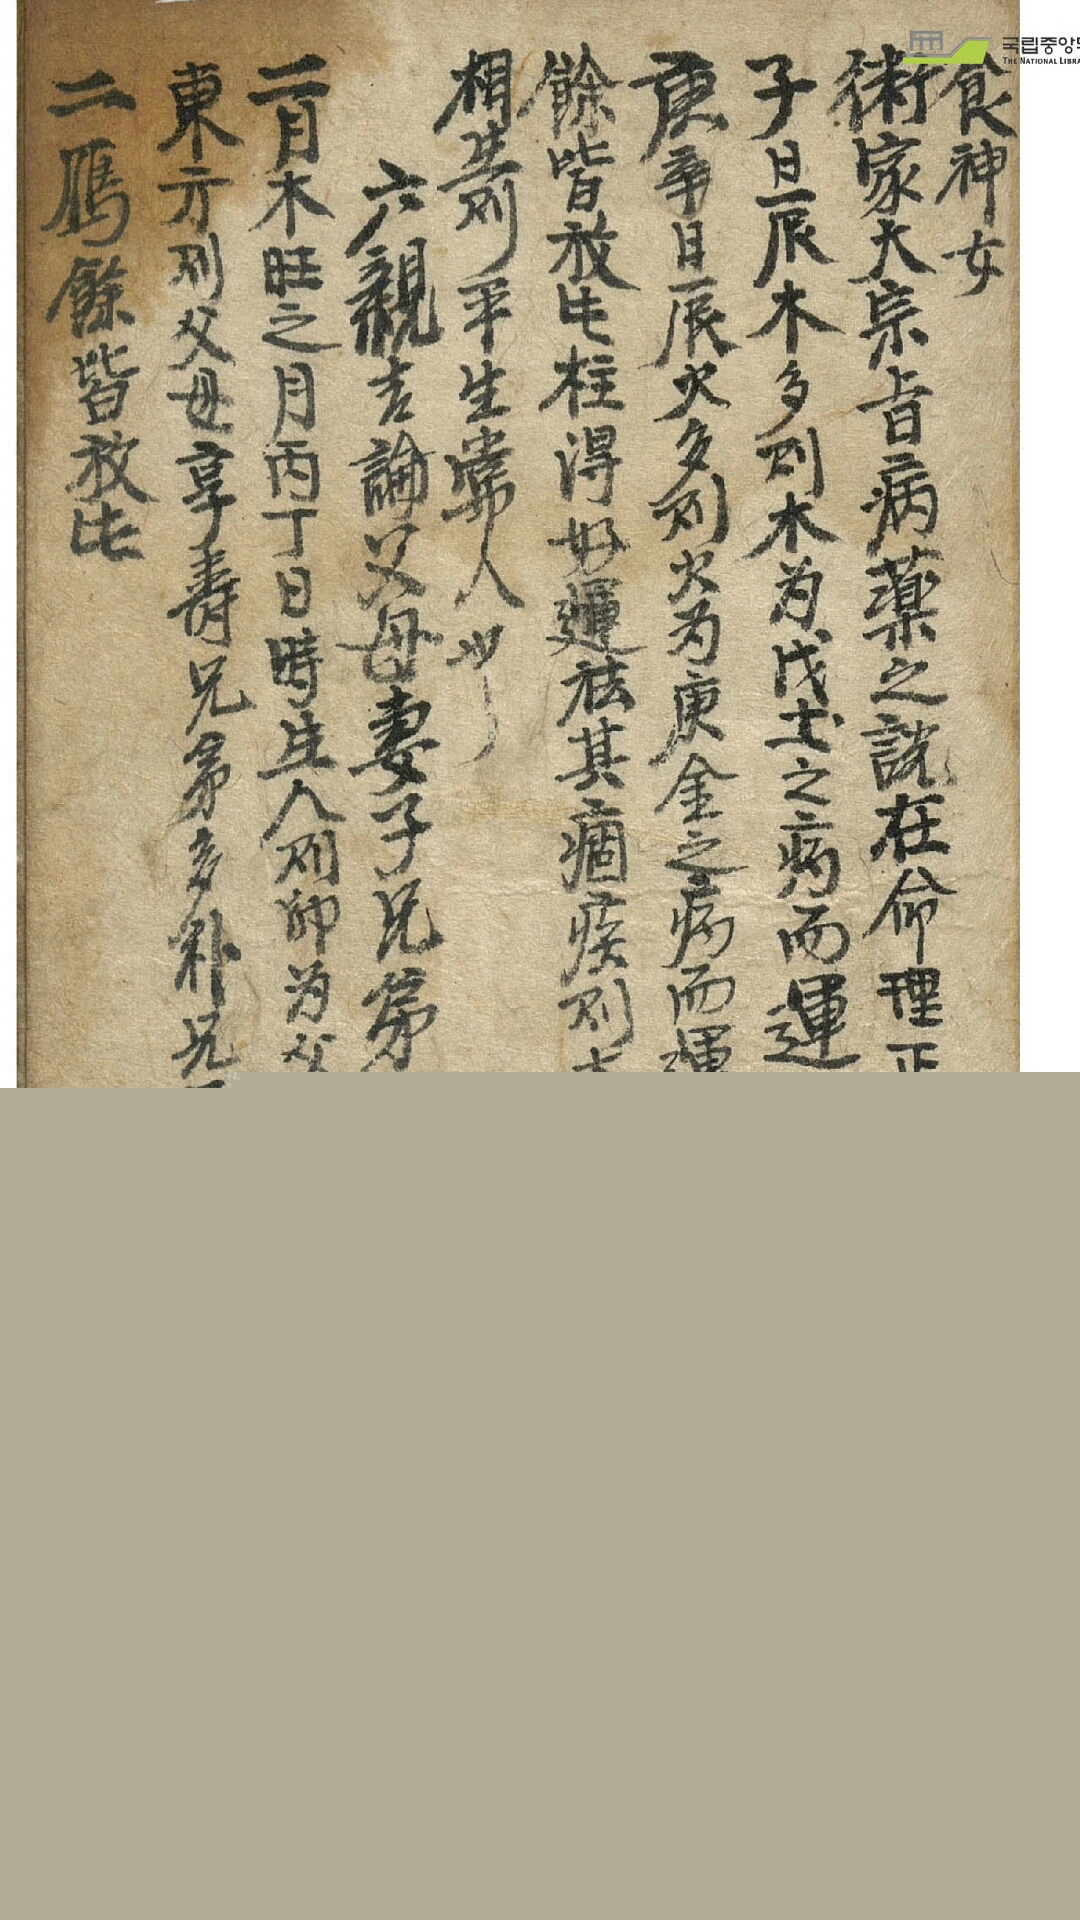 食神女
術家大宗旨病藥之說在命理正
子日辰木多則木为戊土之病而運
庚辛日辰火多則火为庚金之病而運
餘皆放此柱得好運祛其痼疾則
相生則平生常人也
六親吉論父母妻子兄弟
二月木旺之月丙丁日時生人則卯为父
東方則父母享壽兄弟多補兄
二鴈餘皆放此
국립중앙도
THE NATIONAL LIBRA